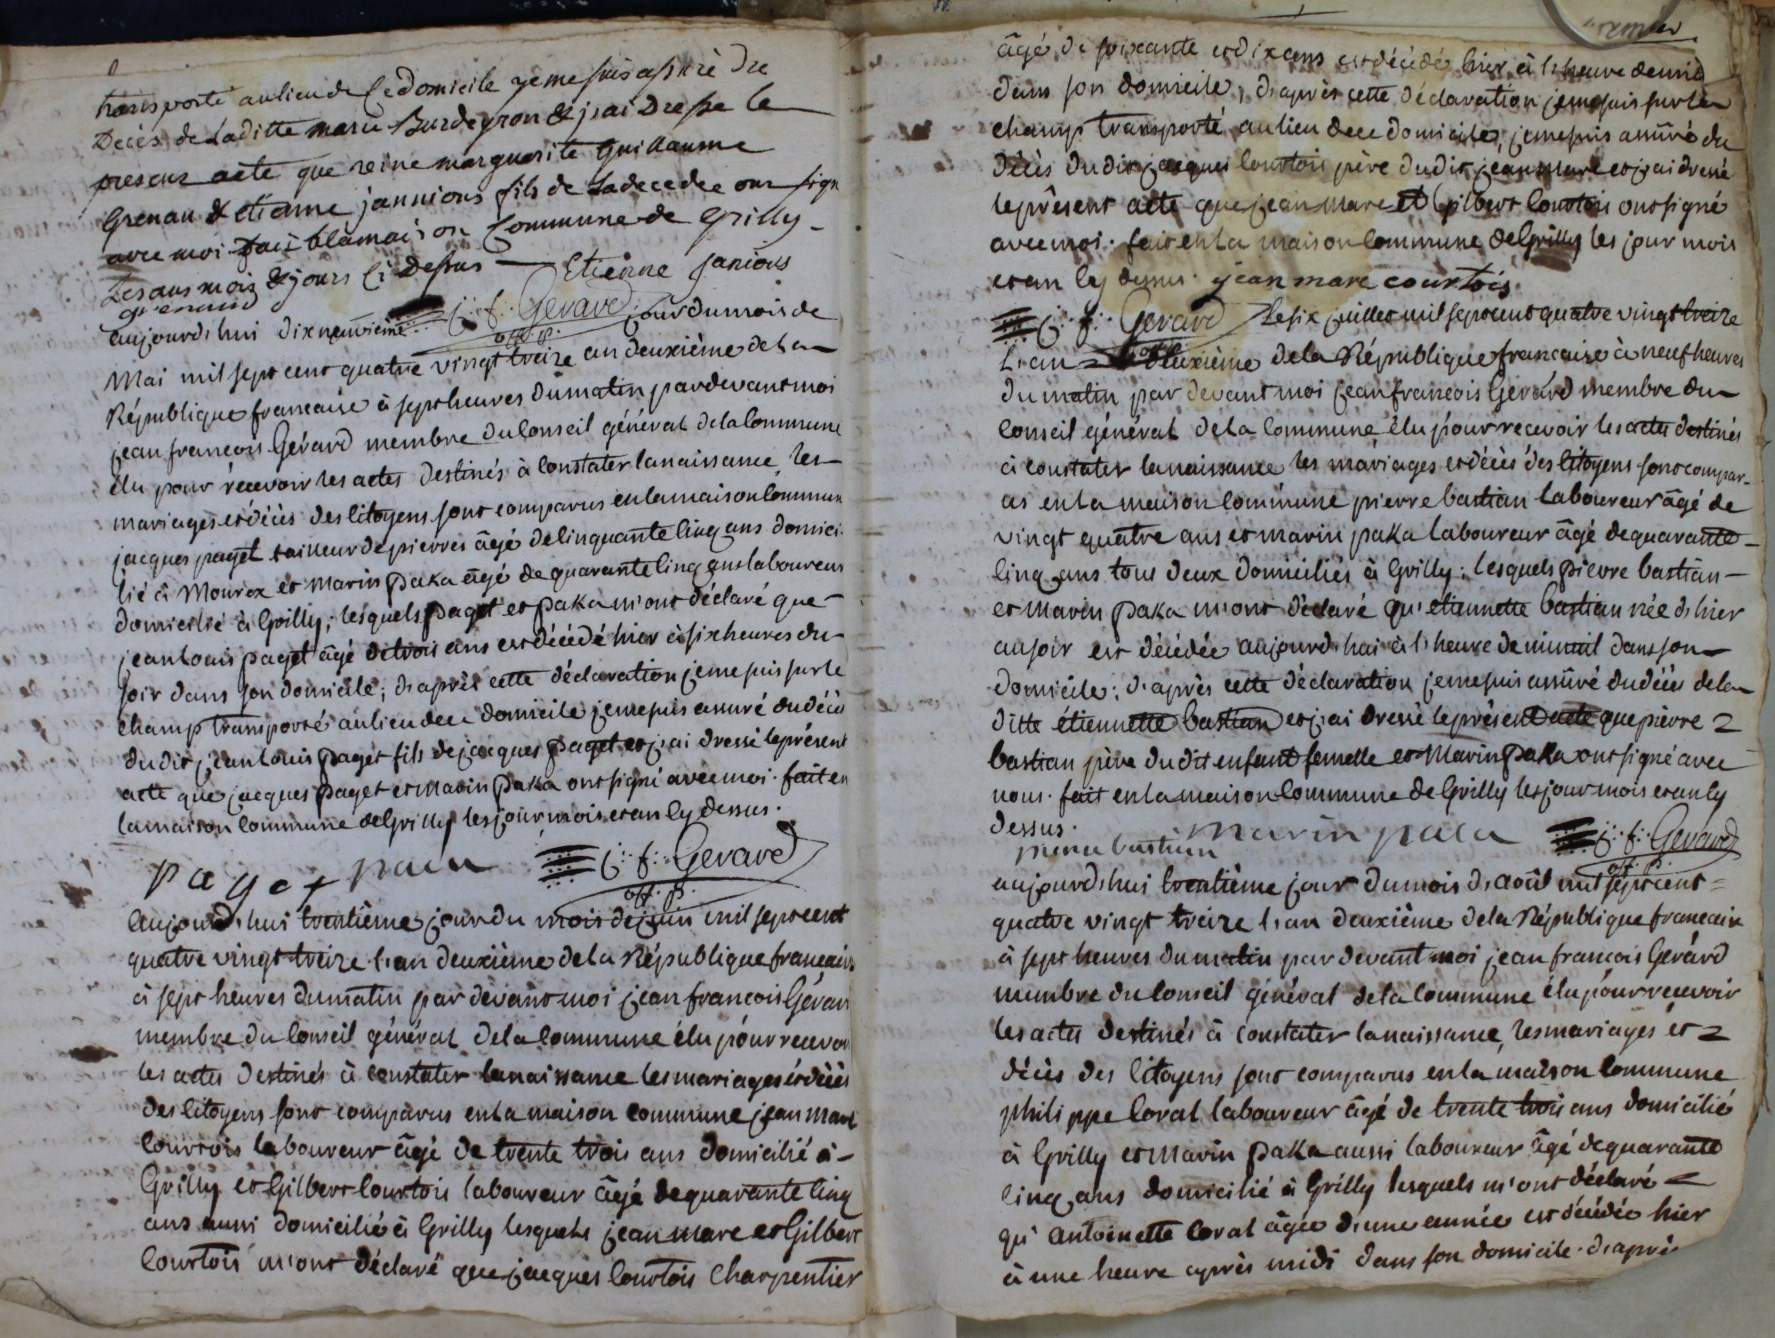 transporté au lieu de ce domicile je me suis assuré du
Décès de Laditte marie Burdeyron & j'ai Dressé le
present acte que reine marguerite Guillaume
Grenau & etienne jannious fils de Ladecedee ont signé
avec moi fait blamaison Commune de Grilly
Les ans mois & jours Ci Dessus Etienne Janious
grenaud
J: f: Gerard
off. p.
aujourd'hui dix neuvième jour du mois de
Mai mil sept cent quatre vingt treize an deuxième de la
République francaise à sept heures du matin par devant moi
jean francois Gérard membre du Conseil général de la Commune
élu pour récevoir les actes destinés à constater la naissance, les
mariages et décès des Citoyens sont comparus en la maison Commune
jacques paget tailleur de pierres âgé de Cinquante Cinq ans domici
lié à Mourex et Marin paka âgé de quarante Cinq ans laboureur
domicilié à Grilly; lesquels paget et paka m'ont déclaré que
jean louis paget âgé de trois ans est décédé hier à six heures du
soir dans son domicile; d'après cette déclaration je me suis sur le
champ transportés au lieu de ce domicile je me suis assuré du décès
du dit jean louis paget fils de jacques paget et j'ai dressé le présent
acte que jacques paget et Marin paka ont signé avec moi. fait en
la maison Commune de Grilly les jour mois et an cy dessus.
paget paca J: f: Gerard
off. p.
aujourd'hui trentième jour du mois de juin mil sept cent
quatre vingt treize l'an deuxième de la République francaise
à sept heures du matin par devant moi jean francois Gérard
membre du Conseil général de la Commune élu pour recevoir
les actes destinés à constater la naissance les mariages et décès
des Citoyens sont comparus en la maison commune jean Marc
Courtois laboureur âgé de trente trois ans domicilié à
Grilly et Gilbert Courtois laboureur âgé de quarante Cinq
ans aussi domicilié à Grilly lesquels jean Marc et Gilbert
Courtois m'ont déclaré que jacques Courtois Charpentier
premier
âgé de soixante et dix ans est décédé hier à l'heure de midi
dans son domicile, d'après cette déclaration je me suis sur le
champ transporté au lieu de ce domicile, je me suis assuré du
décès du dit jacques Courtois père du dit jean Marc et j'ai dressé
le présent acte que jean Marc et Gilbert Courtois ont signé
avec moi. fait en la maison Commune de Grilly les jour mois
et an cy dessus. jean marc courtois.
J: f: Gerard
off. p.
Le six juillet mil sept cent quatre vingt treize
L'an deuxième de la République francaise à neuf heures
du matin par devant moi jean francois Gérard membre du
Conseil général de la Commune élu pour recevoir les actes destinés
à constater la naissance les mariages et décès des Citoyens sont compar-
us en la maison Commune pierre bastian laboureur âgé de
vingt quatre ans et marin paka laboureur âgé de quarante
Cinq ans tous deux domiciliés à Grilly; lesquels pierre bastian
et Marin paka m'ont déclaré qu'etiennette bastian née d'hier
au soir est décédée aujourd'hui à l'heure de minuit dans son
domicile; d'après cette déclaration je me suis assûré du décès de la
ditte étiennette bastian et j'ai dressé le présent acte que pierre
bastian père du dit enfant femelle et Marin paka ont signé avec
nous. fait en la maison Commune de Grilly les jour mois et an cy
dessus.
pierre bastian marin paca J: f: Gerard
off. p.
aujourd'hui trentième jour du mois d'août mil sept cent
quatre vingt treize l'an deuxième de la République francaise
à sept heures du matin par devant moi jean francois Gérard
membre du Conseil général de la Commune élu pour recevoir
les actes destinés à constater la naissance, les mariages et
décès des Citoyens sont comparus en la maison Commune
philippe Corat laboureur âgé de trente trois ans domicilié
à Grilly et Marin paka aussi laboureur âgé de quarante
Cinq ans domicilié à Grilly lesquels m'ont déclaré
qu'antoinette Corat âgée d'une année est décédée hier
à une heure après midi dans son domicile. d'après